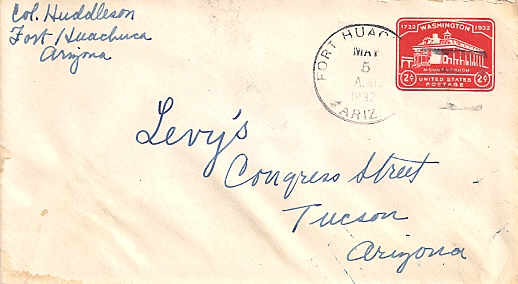 Col. Huddleson
Fort Huachuca
Arizona
FORT HUAC
MAY
5
A.M.
1932
ARIZ
1732 WASHINGTON 1932
MOUNT VERNON
2¢ 2¢
UNITED STATES
POSTAGE
Levy's
Congress Street
Tucson
Arizona